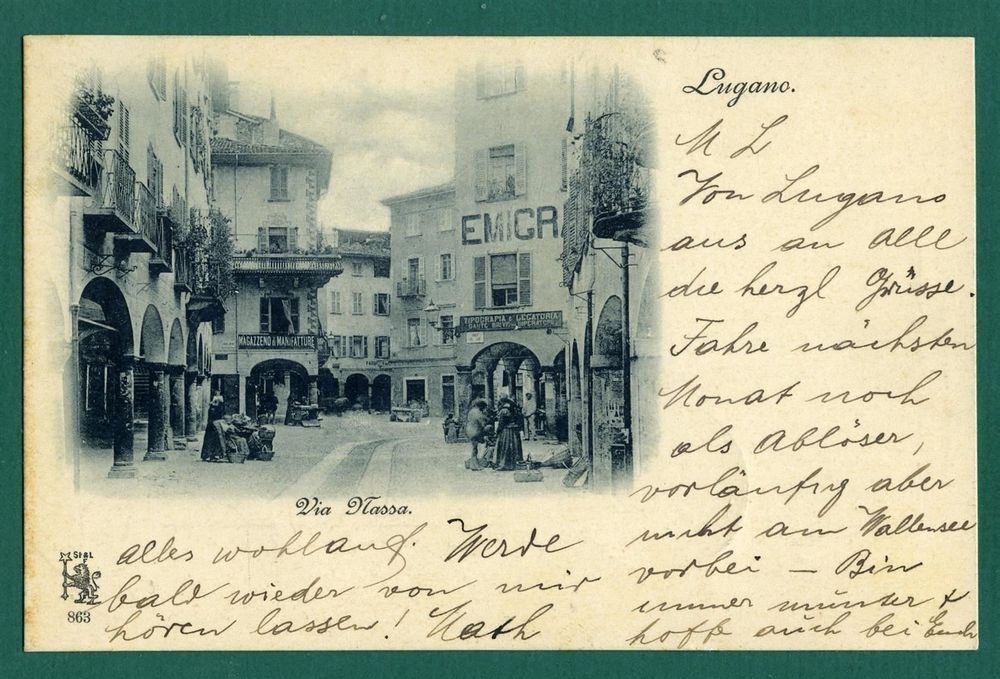 Lugano.
M L
Von Lugano
aus an alle
die herzl Grüsse.
Fahre nächsten
Monat noch
als Ablöser,
vorläufig aber
nicht am Wallensee
vorbei — Bin
immer munter &
hoffe auch bei Euch
alles wohlauf. Werde
bald wieder von mir
hören lassen!
EMIGR
TIPOGRAFIA & LEGATORIA
MAGAZZENO di MANIFATTURE
Via Nassa.
863